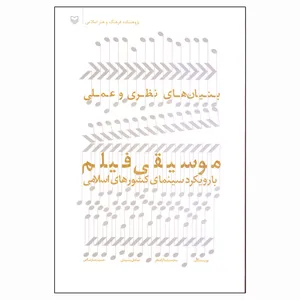 پژوهشکده فرهنگ و هنر اسلامی
بنیان‌های نظری و عملی
موسیقی فیلم
با رویکرد سینمای کشورهای اسلامی